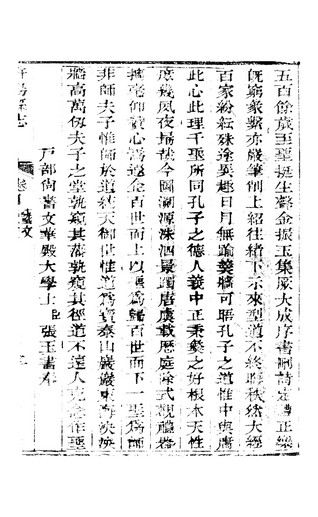 五百餘歲至聖挺生聲金振玉集厥大成序書刪詩定禮正樂
既窮象繫亦嚴筆削上紹往緒下示來型道不終晦秩然大經
百家紛紜殊途異趣日月無踰羹牆可晤孔子之道惟中與庸
此心此理千聖所同孔子之德人義中正秉彝之好根本天性
庶幾夙夜勗哉今圖溯源洙泗景躅唐虞載歷庭除式觀禮器
摛毫仰贊心焉遐企百世而上以聖為歸百世而下一聖爲師
非師夫子惟師於道統天御世惟道為寶泰山巖巖東海泱泱
牆高萬仞夫子之堂孰窺其藩孰窺其徑道不遠人克念作聖
戶部尚書文華殿大學士臣張玉書奉
縣志 卷 藝文